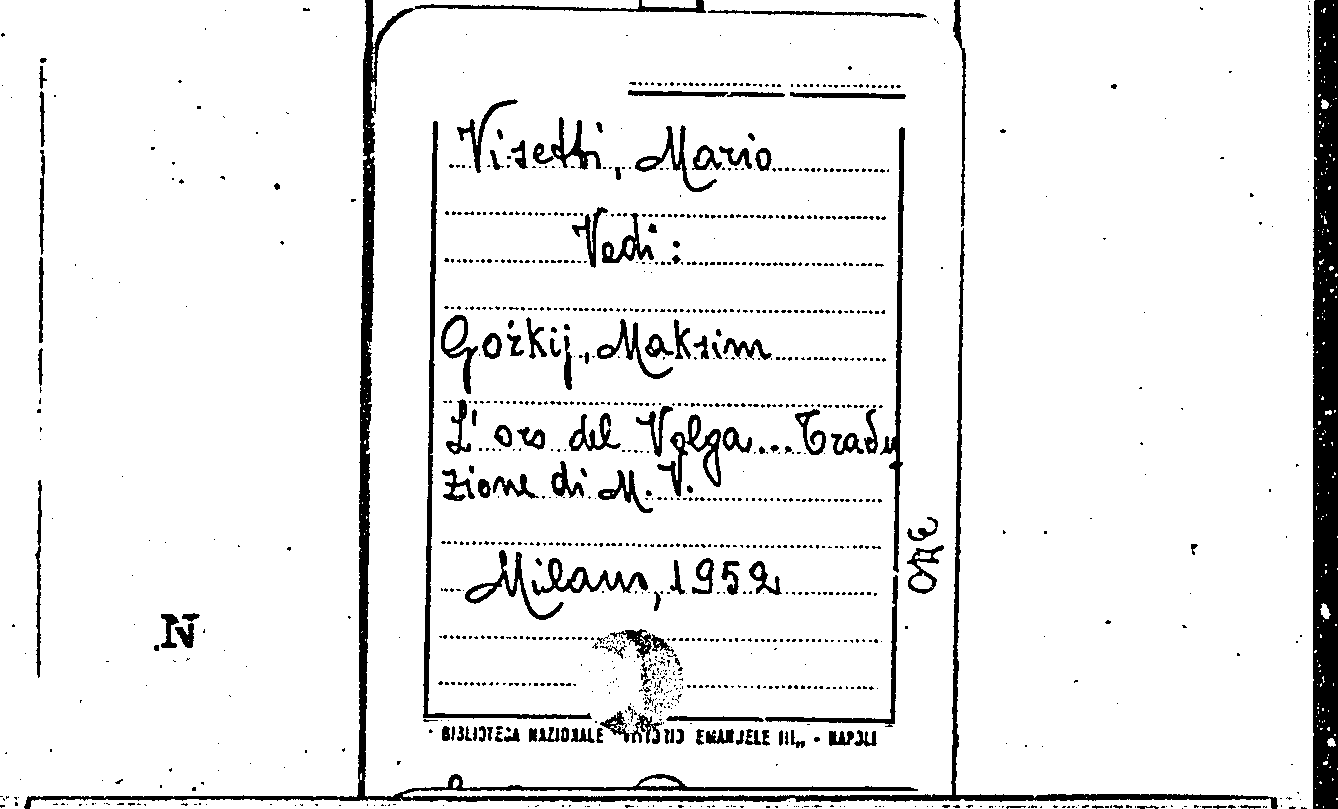 Visetti, Mario
Vedi :
Goŕkij, Maksim
L'oro del Volga... Tradu
zione di M. V.
Milano, 1952
N
BIBLIOTECA NAZIONALE "VITTORIO EMANUELE III„ - NAPOLI